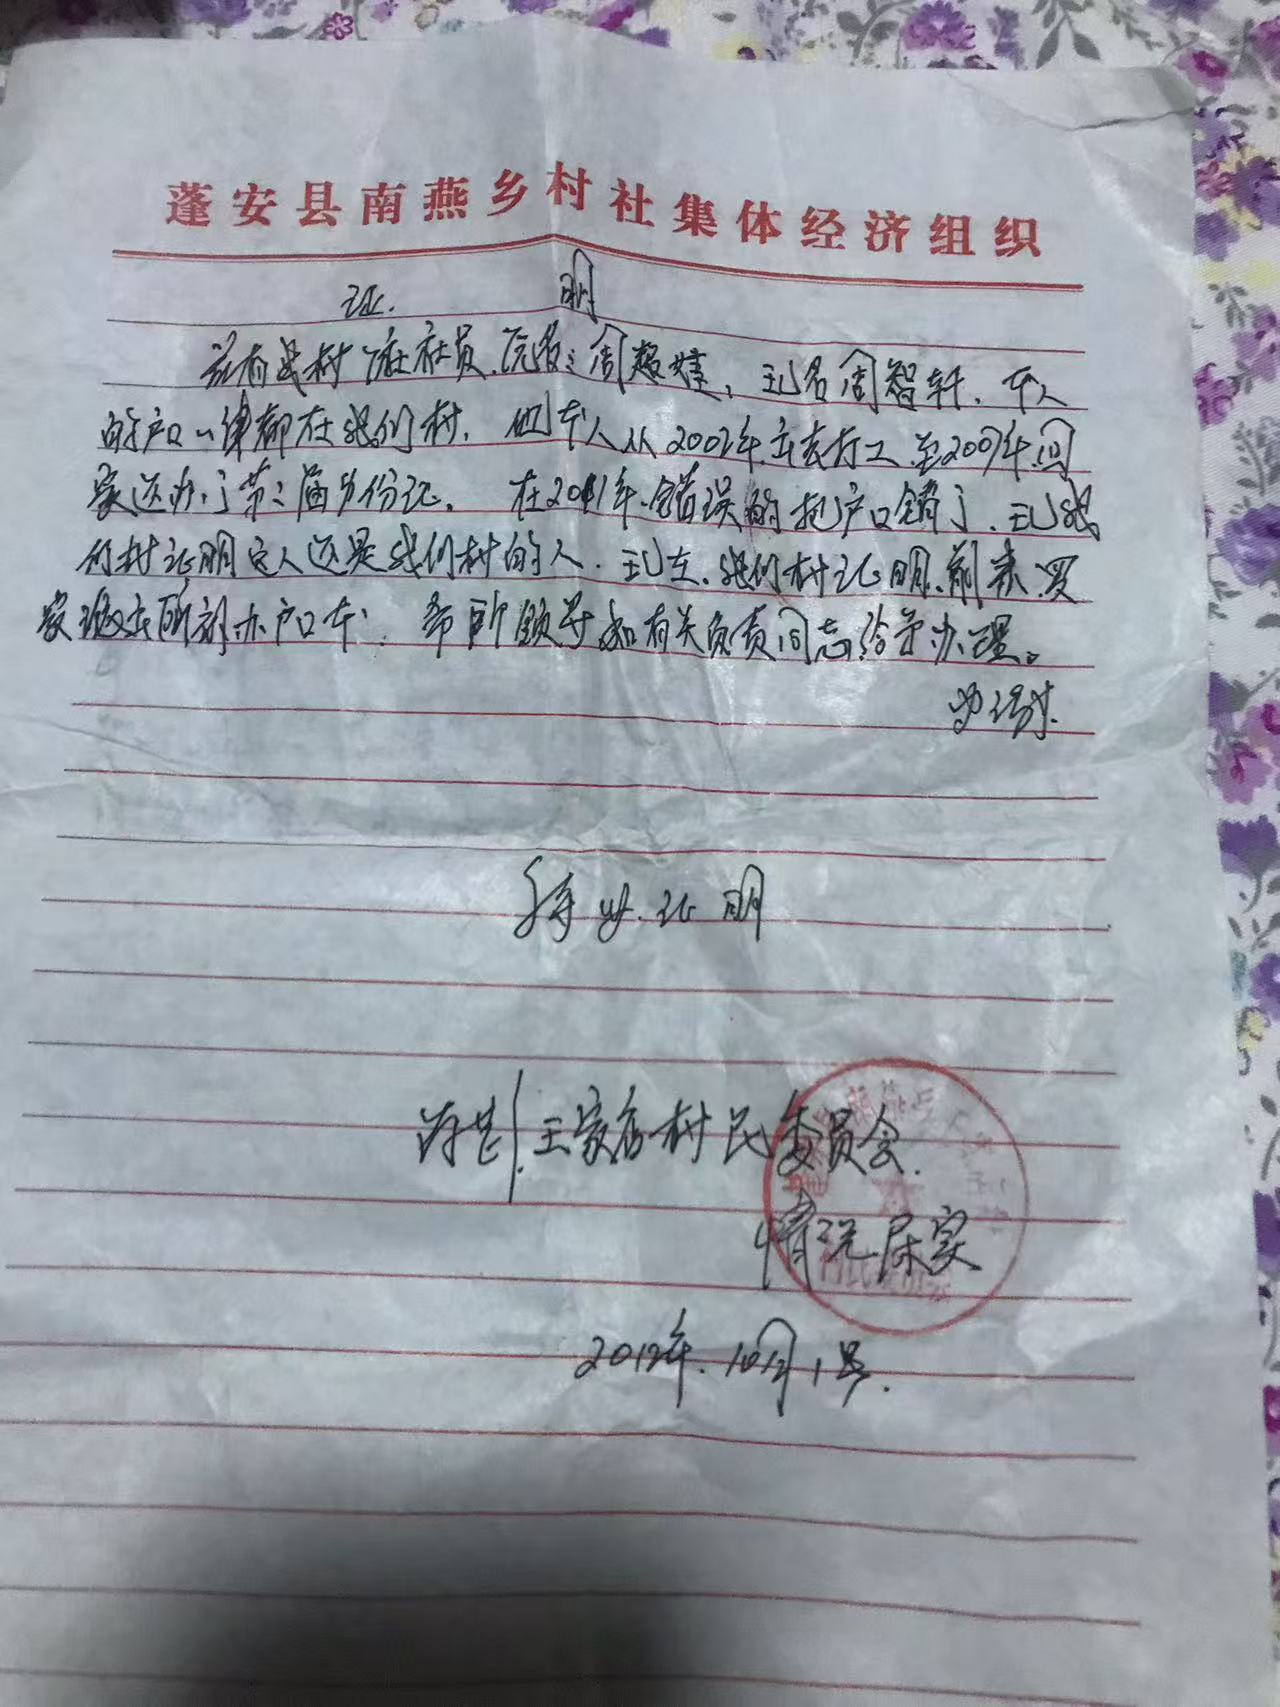 蓬安县南燕乡村社集体经济组织
证 明
兹有我村 社社员,原名:周超 ,现名周智轩,本人
的户口一律都在我们村,他本人从2002年立去打工至2009年回
家还办了第二届身份证。在2011年错误的把户口销了,现我
们村证明它人还是我们村的人,现在,我们村证明,前来,罗
家派出所新办户口本,希所领导和有关负责同志给予办理。
为 .
特此证明
王家店村民委员会.
情况属实
2012年.10月1号.